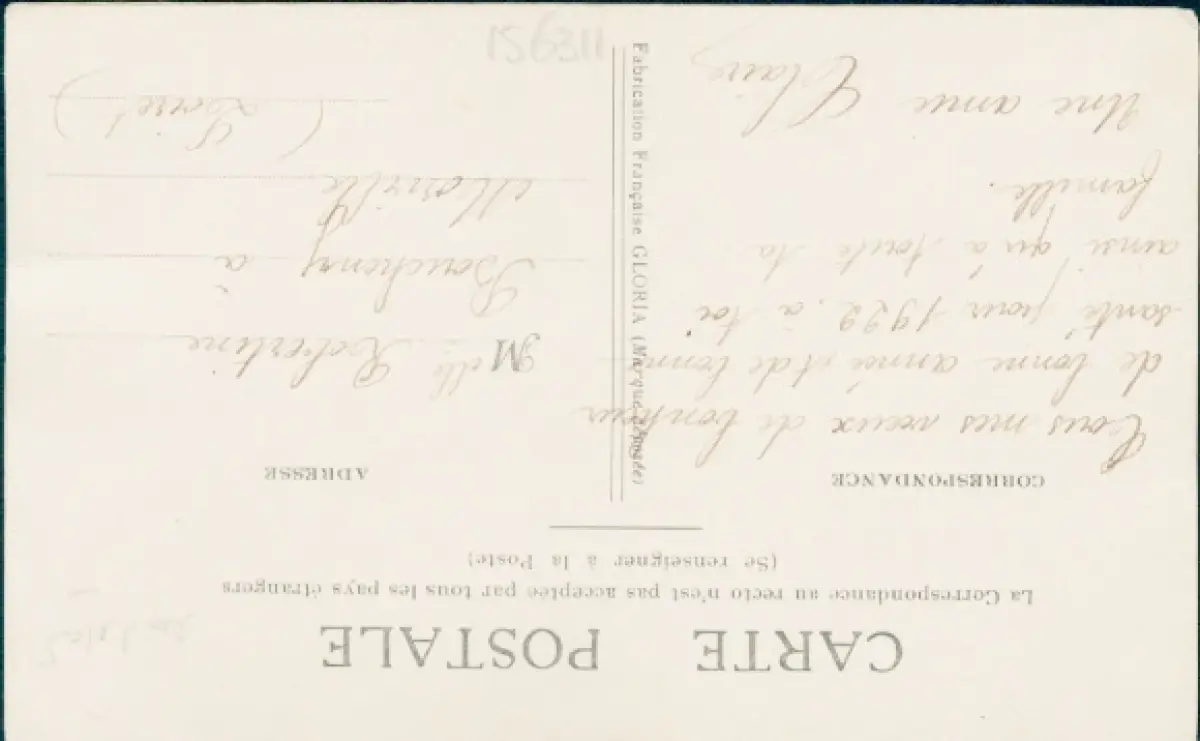 CARTE POSTALE
La Correspondance au recto n'est pas acceptée par tous les pays étrangers
(Se renseigner à la Poste)
CORRESPONDANCE
Tous mes vœux de bonheur
de bonne année et de bonne
santé pour 1922, à toi
ainsi qu'à toute ta
famille.
Une amie Claire
Fabrication Française GLORIA (Marque déposée)
ADRESSE
Melle Robertine
à
(Loiret)